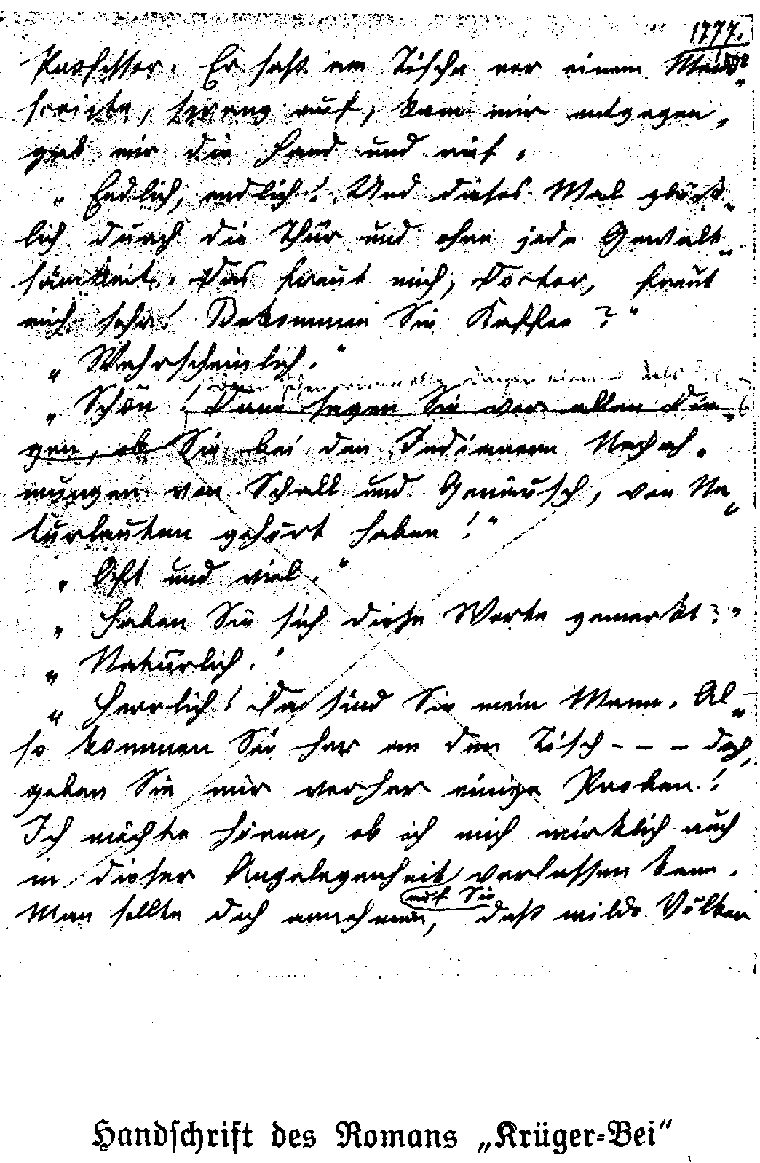 1777.
Professor. Er saß am Tische vor einem Manu„
scripte, sprang auf, kam mir entgegen,
gab mir die Hand und rief:
„Endlich, endlich! Und dieses Mal glück„
lich durch die Thür und ohne jede Gewalt„
samkeit. Das freut mich, Doctor, freut
mich sehr! Bekommen Sie Kaffee?“
„Wahrscheinlich.“
„Schön! Dann sagen Sie vor allen Din„
gen, ob Sie bei den Indianern Nachah„
mungen von Schall und Geräusch, von Na„
turlauten gehört haben!“
„Oft und viel.“
„Haben Sie sich diese Worte gemerkt?“
„Natürlich.“
„Herrlich! Da sind Sie mein Mann. Al„
so kommen Sie her an den Tisch – – – doch,
geben Sie mir vorher einige Proben!
Ich möchte hören, ob ich mich wirklich auch
in dieser Angelegenheit verlassen kann.
auf Sie
Man sollte doch annehmen, daß wilde Völker
Handschrift des Romans „Krüger-Bei“